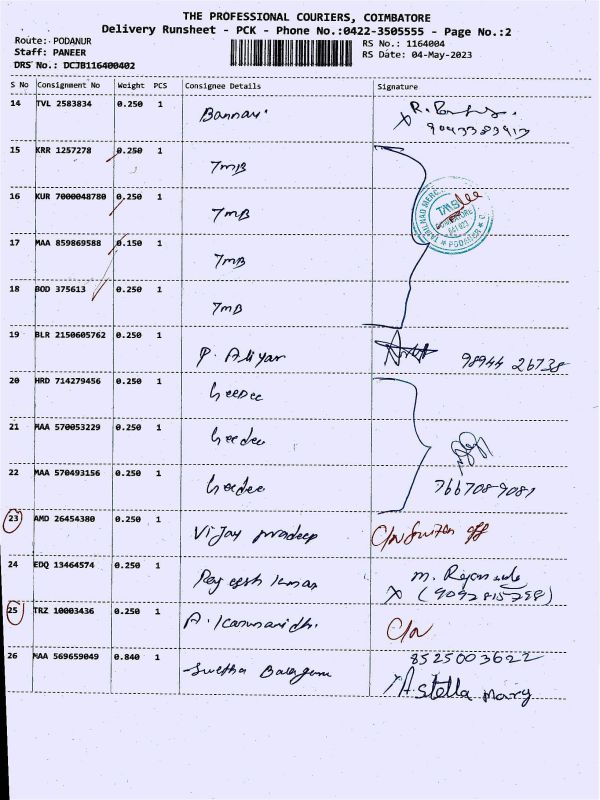 THE PROFESSIONAL COURIERS, COIMBATORE
Delivery Runsheet - PCK - Phone No.:0422-3505555 - Page No.:2
Route: PODANUR
RS No.: 1164004
Staff: PANEER
RS Date: 04-May-2023
DRS No.: DCJB116400402
S No Consignment No Weight PCS Consignee Details Signature
14 TVL 2583834 0.250 1 Bannari
15 KRR 1257278 0.250 1 TMB
16 KUR 7000048780 0.250 1 TMB
17 MAA 859869588 0.150 1 TMB
18 BOD 375613 0.250 1 TMB
TMS
PODANUR
19 BLR 2150605762 0.250 1 P. Aliyar 98944 26738
20 HRD 714279456 0.250 1 Geedee
21 MAA 570053229 0.250 1 Geedee
22 MAA 570493156 0.250 1 Geedee 7667089081
23 AMD 26454380 0.250 1 Vijay pradeep
24 EDQ 13464574 0.250 1 Rajeesh Kumar
25 TRZ 10003436 0.250 1 A. Karunanidhi
26 MAA 569659049 0.840 1 Swetha 8525003622
A stella mary